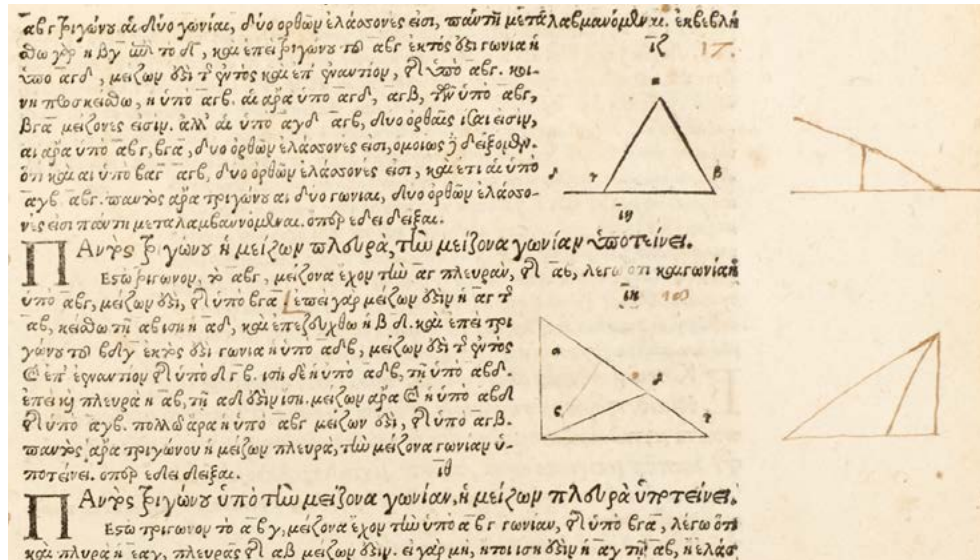 αβγ τριγώνου αἱ δύο γωνίαι, δύο ὀρθῶν ἐλάσσονές εἰσι, πάντῃ μεταλαμβανόμεναι. ἐκβεβλή
σθω γὰρ ἡ βγ ἐπὶ τὸ δ, καὶ ἐπεὶ τριγώνου τοῦ αβγ ἐκτός ἐστι γωνία ἡ
ιζ 17.
ὑπὸ αγδ, μείζων ἐστὶ τῆς ἐντὸς καὶ ἀπεναντίον, τῆς ὑπὸ αβγ. κοι-
νὴ προσκείσθω, ἡ ὑπὸ αγβ. αἱ ἄρα ὑπὸ αγδ, αγβ, τῶν ὑπὸ αβγ,
βγα μείζονές εἰσιν. ἀλλ' αἱ ὑπὸ αγδ αγβ, δυο ὀρθαῖς ἴσαι εἰσιν,
αἱ ἄρα ὑπὸ αβγ, βγα, δυο ὀρθῶν ἐλάσσονές εἰσι, ὁμοίως δὴ δείξομεν.
ὅτι καὶ αἱ ὑπὸ βαγ αγβ, δύο ὀρθῶν ἐλάσσονές εἰσι, καὶ ἔτι αἱ ὑπὸ
δ γ β
αγβ αβγ. παντὸς ἄρα τριγώνου αἱ δύο γωνίαι, δύο ὀρθῶν ἐλάσσο-
νές εἰσι πάντη μεταλαμβανόμεναι. ὅπερ ἔδει δεῖξαι.
ιη
Παντὸς τριγώνου ἡ μείζων πλευρὰ, τὴν μείζονα γωνίαν ὑποτείνει.
Ἔστω τρίγωνον, τὸ αβγ, μείζονα ἔχον τὴν αγ πλευρὰν, τῆς αβ, λέγω ὅτι καὶ γωνία ἡ
ὑπὸ αβγ, μείζων ἐστὶ, τῆς ὑπὸ βγα ἐπεὶ γὰρ μείζων ἐστὶν ἡ αγ τῆς
ιη
αβ, κείσθω τῇ αβ ἴση ἡ αδ, καὶ ἐπεζεύχθω ἡ βδ. καὶ ἐπεὶ τρι
γώνου τοῦ βδγ ἐκτός ἐστι γωνία ἡ ὑπὸ αδβ, μείζων ἐστὶ τῆς ἐντὸς
α
καὶ ἀπεναντίον τῆς ὑπὸ δγβ. ἴση δὲ ἡ ὑπὸ αδβ, τῇ ὑπὸ αβδ.
δ
ἐπεὶ καὶ πλευρὰ ἡ αβ, τῇ αδ ἐστὶν ἴση. μείζων ἄρα καὶ ἡ ὑπὸ αβδ
τῆς ὑπὸ αγβ. πολλῷ ἄρα ἡ ὑπὸ αβγ μείζων ἐστὶ, τῆς ὑπὸ αγβ.
ϛ γ
παντὸς ἄρα τριγώνου ἡ μείζων πλευρὰ, τὴν μείζονα γωνίαν ὑ-
ποτείνει. ὅπερ ἔδει δεῖξαι.
ιθ
Παντὸς τριγώνου ὑπὸ τὴν μείζονα γωνίαν, ἡ μείζων πλευρὰ ὑποτείνει.
Ἔστω τρίγωνον τὸ αβγ, μείζονα ἔχον τὴν ὑπὸ αβγ γωνίαν, τῆς ὑπὸ βγα, λέγω ὅτι
καὶ πλευρὰ ἡ αγ, πλευρᾶς τῆς αβ μείζων ἐστίν. εἰ γὰρ μὴ, ἤτοι ἴση ἐστὶν ἡ αγ τῇ αβ, ἢ ἐλάσ